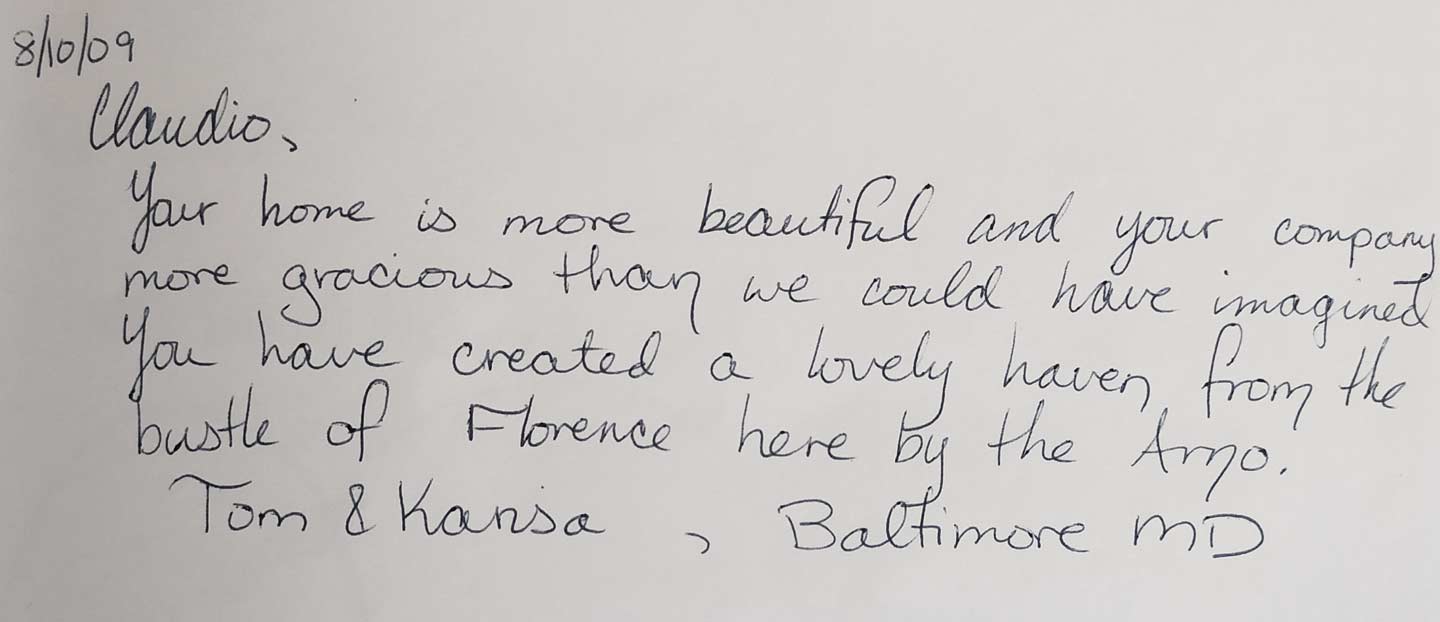 8/10/09
Claudio,
Your home is more beautiful and your company
more gracious than we could have imagined
You have created a lovely haven from the
bustle of Florence here by the Arno.
Tom & Karisa, Baltimore MD